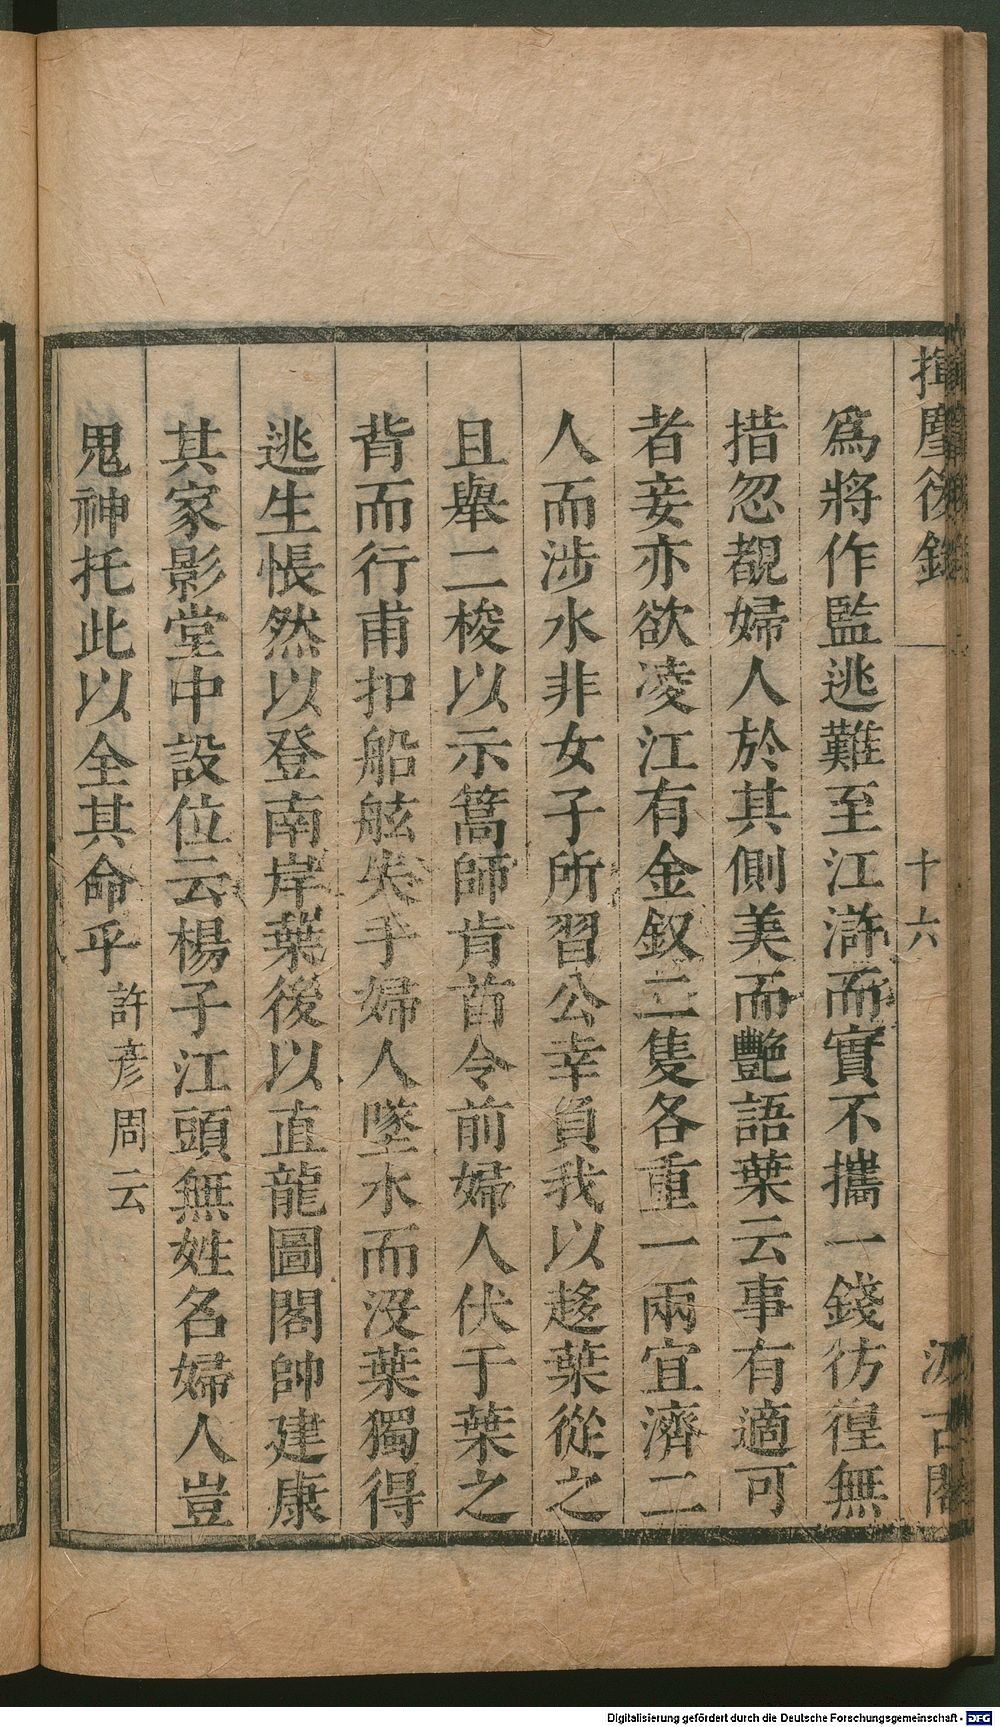 揮麈後錄
十六
汲古閣
爲將作監逃難至江滸而實不攜一錢彷徨無
措忽覩婦人於其側美而艷語葉云事有適可
者妾亦欲凌江有金釵二隻各重一兩宜濟二
人而涉水非女子所習公幸負我以趍葉從之
且舉二梭以示篙師肯首令前婦人伏于葉之
背而行甫扣船舷失手婦人墜水而沒葉獨得
逃生悵然以登南岸葉後以直龍圖閣帥建康
其家影堂中設位云楊子江頭無姓名婦人豈
鬼神托此以全其命乎許彥周云
Digitalisierung gefördert durch die Deutsche Forschungsgemeinschaft - DFG